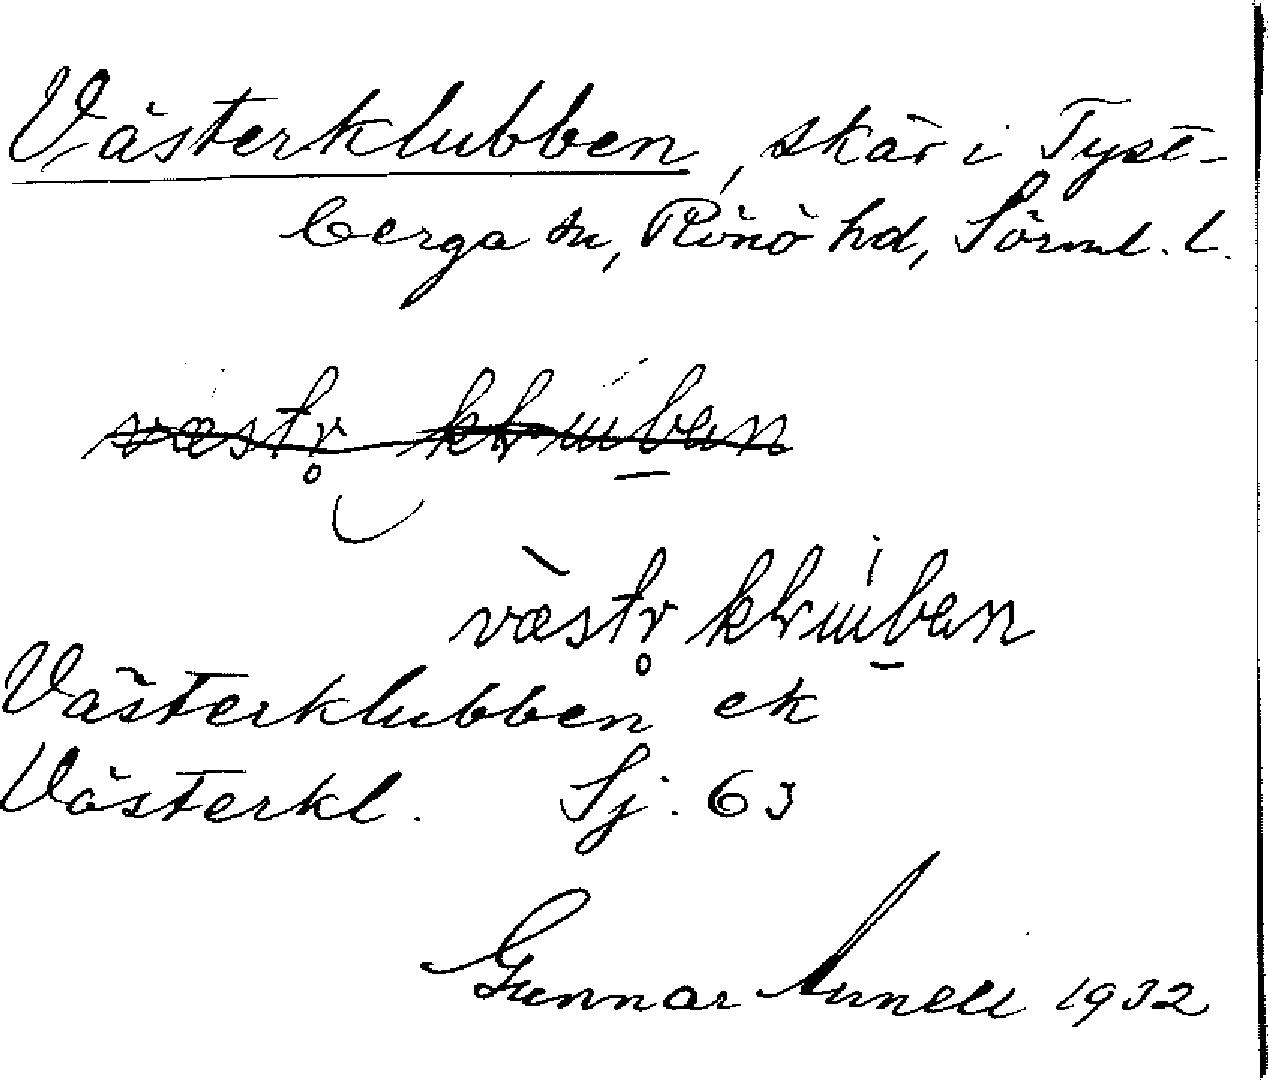 Västerklubben, skär i Tyst-
berga sn, Rönö hd, Sörml. l.
västr klɯban
västr klɯban
Västerklubben ek
Västerkl. Sj. 63
Gunnar Annell 1932